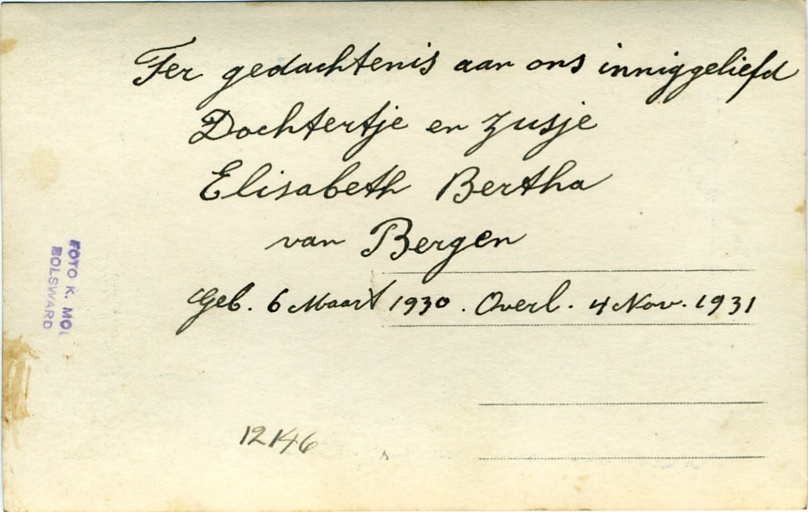 Ter gedachtenis aan ons inniggeliefd
Dochtertje en Zusje
Elisabeth Bertha
van Bergen
Geb. 6 Maart 1930. Overl. 4 Nov. 1931
12146
FOTO K. MOL
BOLSWARD